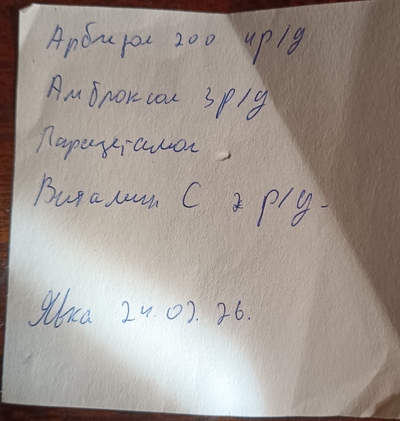 Арбидол 200 4 р/д
Амброксол 3 р/д
Парацетамол
Витамин С 2 р/д
Явка 24.02.26.